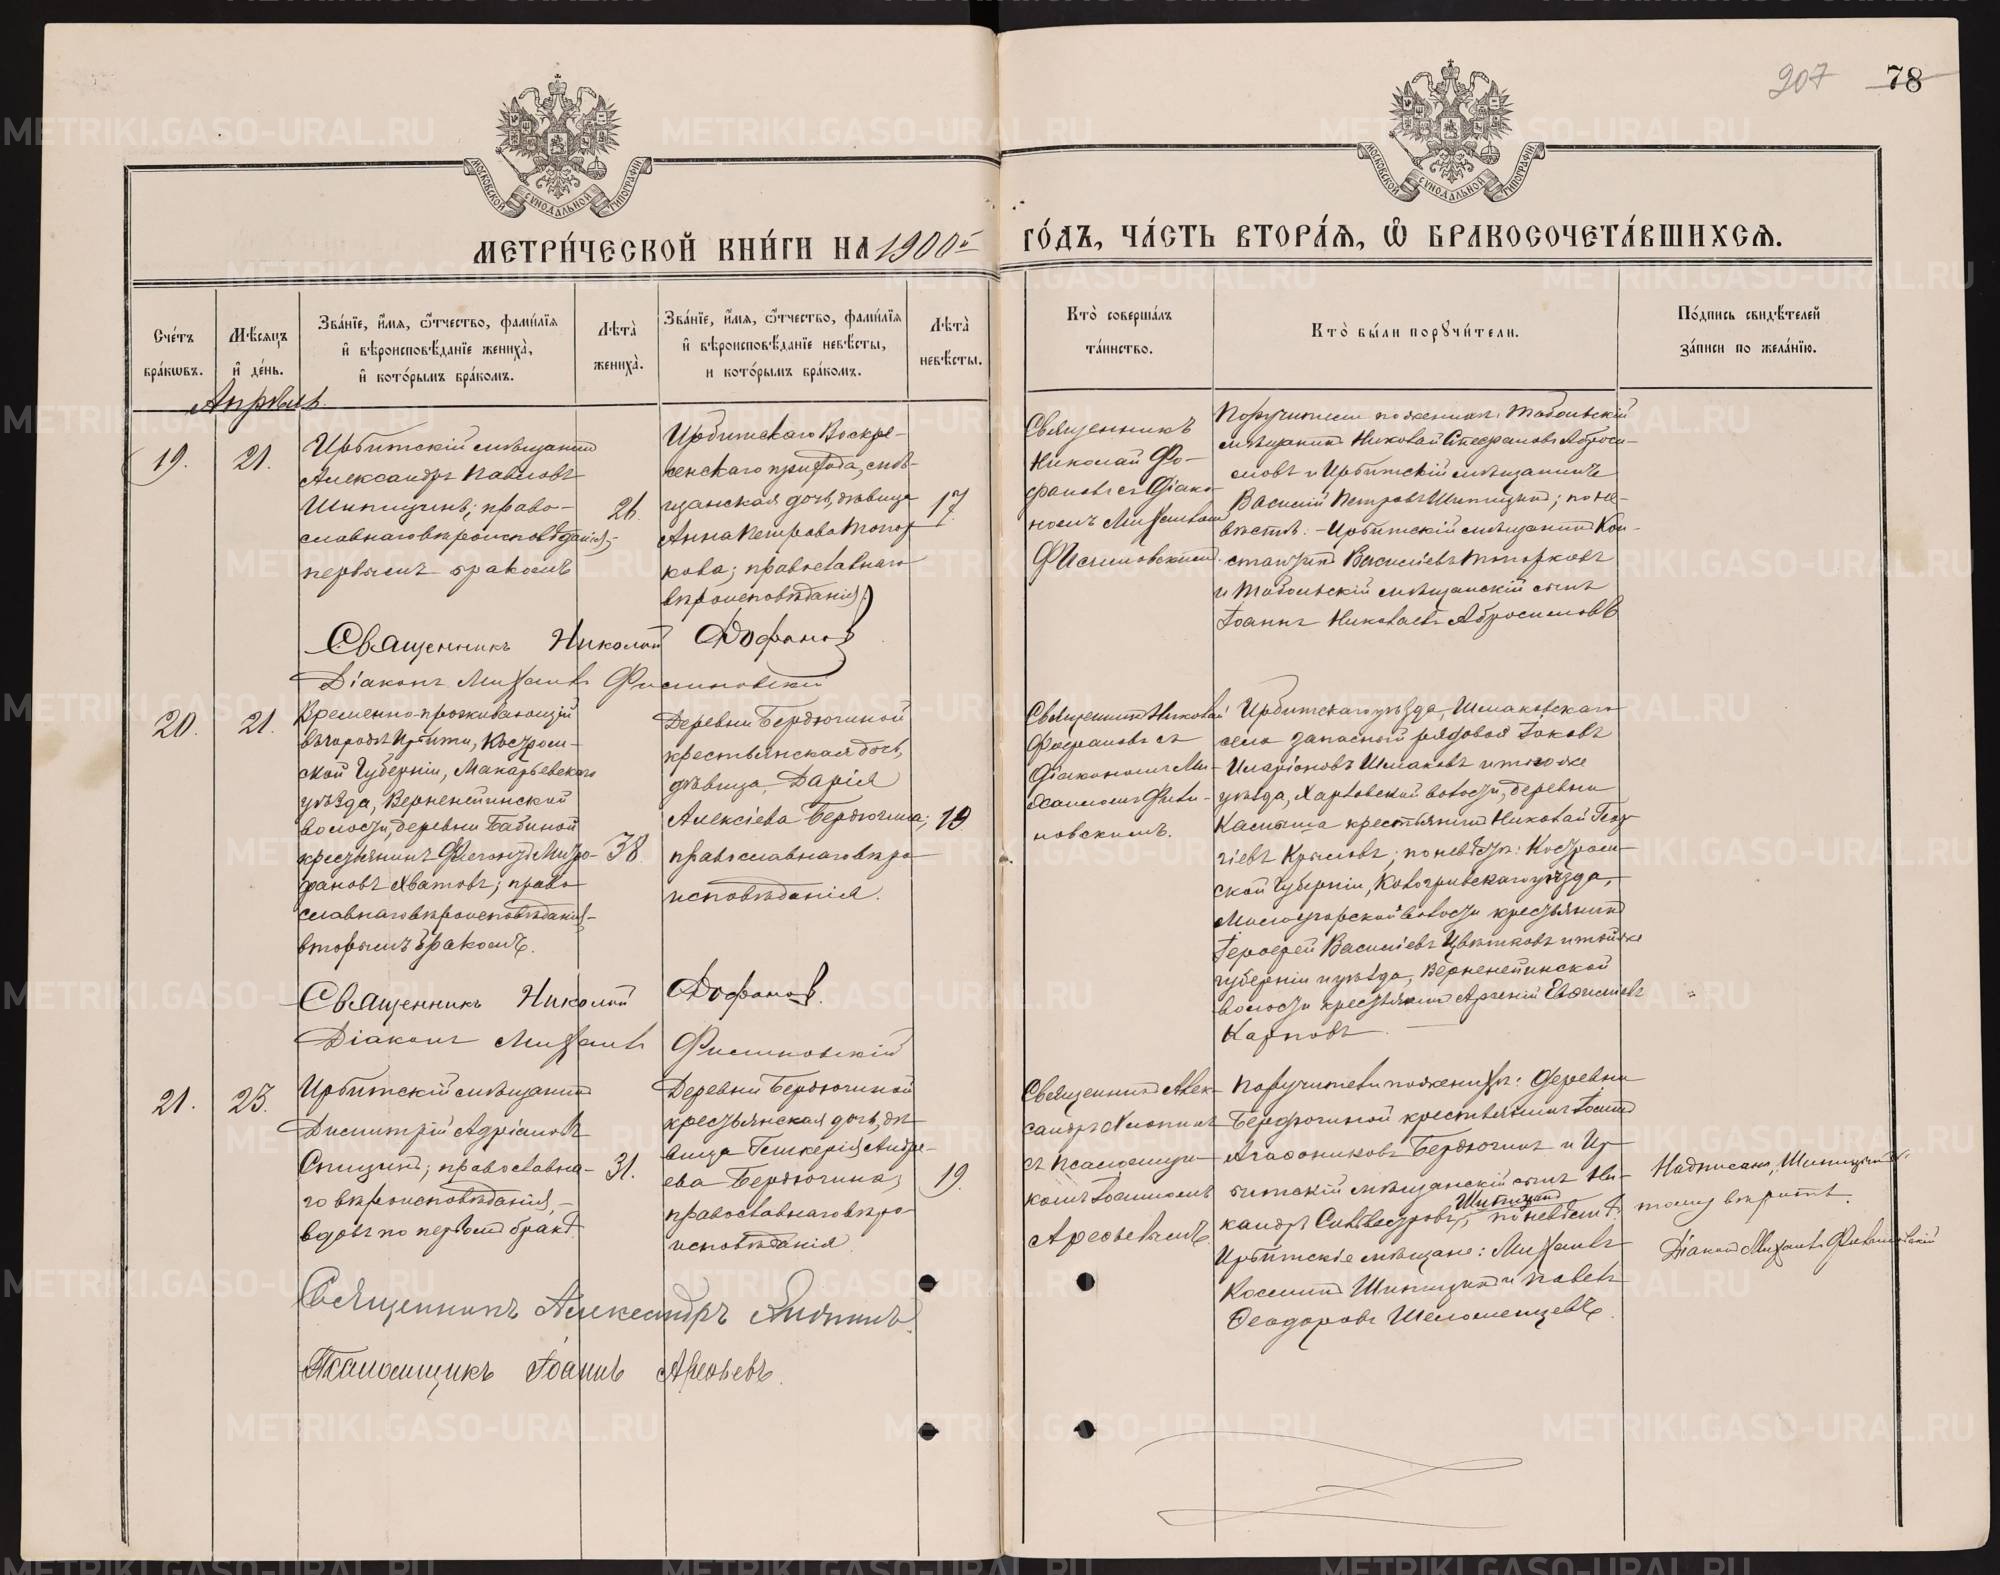 207 78
МОСКОВСКОЙ СѴНОДАЛЬНОЙ ТИПОГРАФИИ
МОСКОВСКОЙ СѴНОДАЛЬНОЙ ТИПОГРАФИИ
МЕТРИ́ЧЕСКОЙ КНИ́ГИ НА 1900й ГО́ДЪ, ЧА́СТЬ ВТОРА́Я, Ѡ БРАКОСОЧЕТА́ВШИХСЯ.
Сче́тъ
бра́кѡвъ.
Мѣсяцъ
и҆ де́нь.
Зва́нїе, и҆́мя, ѻ҆́тчество, фами́лїя
и҆ вѣроисповѣ́данїе жениха̀,
и҆ кото́рымъ бра́комъ.
Лѣ́та̀
жениха̀.
Зва́нїе, и҆́мя, ѻ҆́тчество, фами́лїя
и҆ вѣроисповѣ́данїе невѣ́сты,
и кото́рымъ бра́комъ.
Лѣ́та̀
невѣ́сты.
Кто̀ соверша́лъ
та́инство.
Кто̀ бы́ли порꙋчи́тели.
По́дпись свидѣ́телей
за́писи по жела́нїю.
Апрѣль
19.
21.
Ирбитскій мѣщанинъ
Александръ Павловъ
Шипицинъ; право-
славнаго вѣроисповѣданія,-
первымъ бракомъ
26.
Ирбитскаго Воскре-
сенскаго прихода, мѣ-
щанская дочь, дѣвица
Анна Петрова Топор
кова; православнаго
вѣроисповѣданія.
17.
Священникъ
Николай До-
фановъ съ Діако-
номъ Михаиломъ
Филиновскимъ.
Поручители по женихѣ: Тобольскій
мѣщанинъ Николай Стефановъ Аброси-
мовъ и Ирбитскій мѣщанинъ
Василій Петровъ Шипицинъ; по не-
вѣстѣ: - Ирбитскій мѣщанинъ Кон-
стантинъ Василіевъ Топорковъ
и Тобольскій мѣщанскій сынъ
Іоаннъ Николаевъ Абросимовъ
Священникъ Николай Дофановъ
Діаконъ Михаилъ Филиновскій
20.
21.
Временно-проживающій
въ городѣ Ирбити, Костром-
ской Губерніи, Макарьевскаго
уѣзда, Верхненейнской
волости, деревни Бабиной
крестьянинъ Флегонтъ Митро-
фановъ Хватовъ; право
славнаго вѣроисповѣданія,-
вторымъ бракомъ.
38
Деревни Бердюгиной
крестьянская дочь,
дѣвица, Дарія
Алексіева Бердюгина;
православнаго вѣро
исповѣданія.
19
Священникъ Николай
Дофановъ съ
Діакономъ Ми-
хаиломъ Фили-
новскимъ.
Ирбитскаго уѣзда, Шмаковскаго
села запасный рядовой Іаковъ
Иларіоновъ Шмаковъ и того же
уѣзда, Харловской волости, деревни
Камыша крестьянинъ Николай Геор
гіевъ Крыловъ; по невѣстѣ: Костром-
ской Губерніи, Кологривскаго уѣзда,
крестьянинъ
Іерофей Василіевъ Цвѣтковъ и той же
губерніи и уѣзда, Верхненейнской
волости крестьянинъ Арсеній Евфиміевъ
Карповъ.
Священникъ Николай Дофановъ.
Діаконъ Михаилъ Филиновскій
21.
23.
Ирбитскій мѣщанинъ
Димитрій Адріановъ
Спицинъ; православна-
го вѣроисповѣданія,-
вдовъ по первомъ бракѣ.
31.
Деревни Бердюгиной
крестьянская дочь, дѣ
вица Гликерія Андре-
ева Бердюгина;
православнаго вѣро
исповѣданія.
19.
Священникъ Алек-
сандръ
съ псаломщи-
комъ Іоанномъ
Арефьевымъ.
Поручители по женихѣ: деревни
Бердюгиной крестьянинъ Іоаннъ
Агафониковъ Бердюгинъ и Ир-
битскій мѣщанскій сынъ Ни-
Шипицинъ
кандръ Сильвестровъ; по невѣстѣ:
Ирбитскіе мѣщане: Михаилъ
Косминъ Шипицинъ и Павелъ
Феодоровъ Шеломенцевъ.
Надписанному, Шипицинъ
тому вѣрить.
Діаконъ Михаилъ Филиновскій
Священникъ Александръ
Псаломщикъ Іоаннъ Арефьевъ.
METRIKI.GASO-URAL.RU